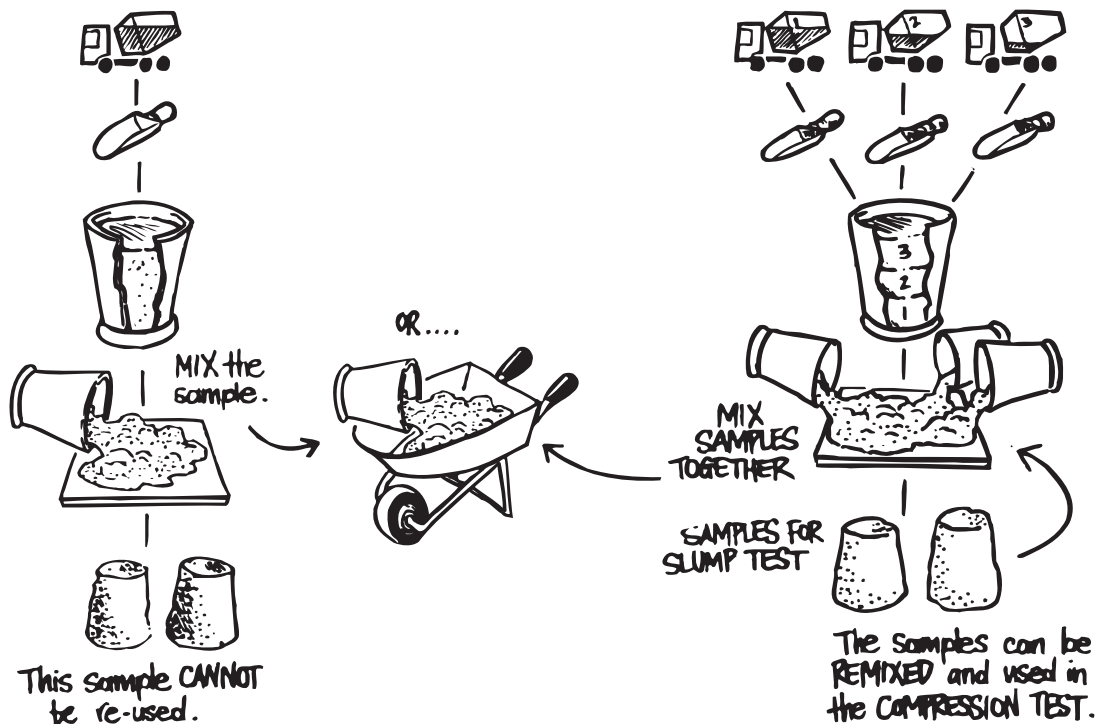 1
2
3
3
2
OR....
MIX the
sample.
MIX
SAMPLES
TOGETHER
SAMPLES FOR
SLUMP TEST
This sample CANNOT
be re-used.
The samples can be
REMIXED and used in
the COMPRESSION TEST.